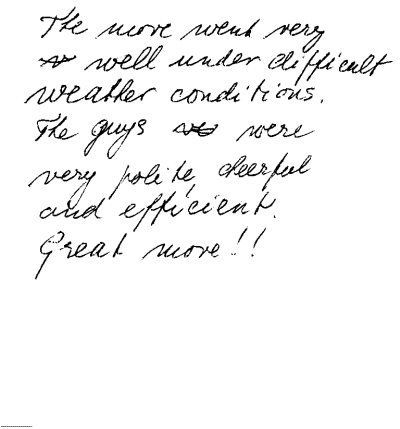 The move went very
well under difficult
weather conditions.
The guys were
very polite, cheerful
and efficient.
Great move!!